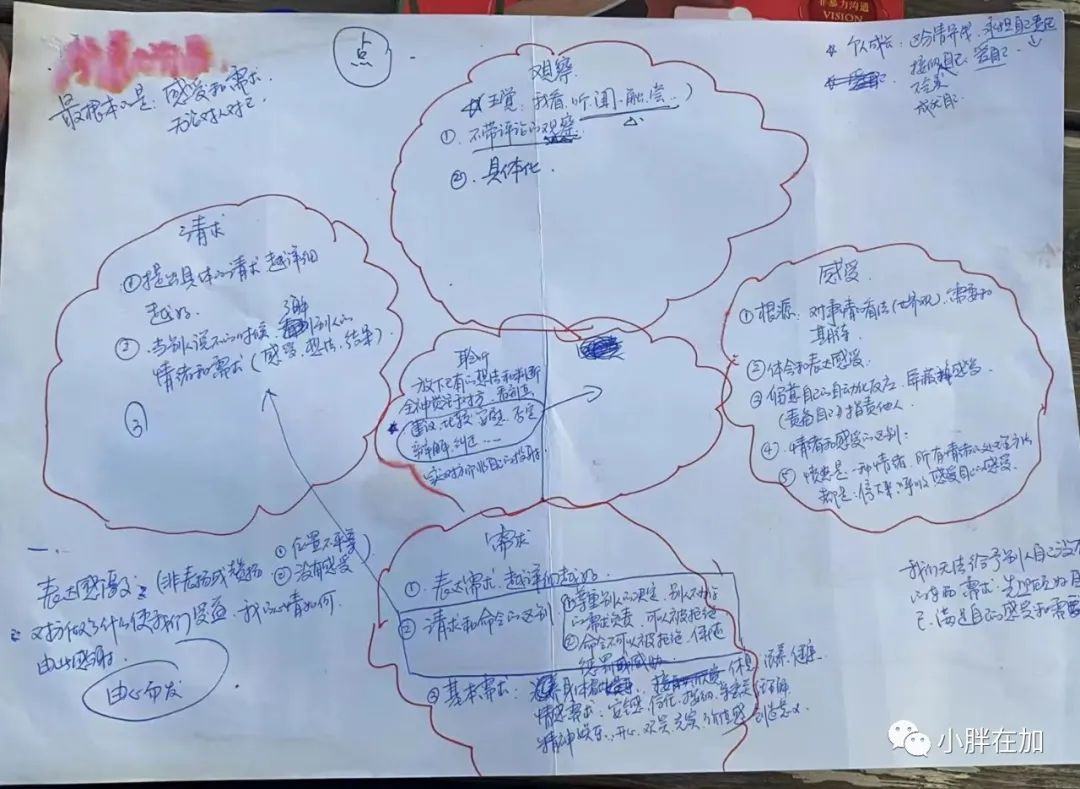 非暴力沟通
VISION
点
最根本的是：感受和需求
无论对人对己
个人成长：
接纳自己，爱自己
成为自己
观察
五觉：我看、听、闻、触、尝、）
①、不带评论的观察
②、具体化、
请求
①提出具体的请求 越详细
越好、
②、当别人说不的时候、了解别人的
情绪和需求（感受、想法、结果）
③
聆听
放下已有的想法和判断
全神贯注于对方、
建议、比较、
辩解、纠正……
感受
①根源：对事情的看法（世界观）、需要和
期待
②体会和表达感受、
③ 自己的自动化反应、屏蔽掉感受、
（责备自己）指责他人、
④、情绪和感受的区别：
⑤ 愤怒是一种情绪，所有情绪的处理方法
都是：停下来、呼吸、感受自己的感受、
需求
①、表达需求、越详细越好、
② 请求和命令的区别
①尊重别人的决定、别人不为你
的需求负责、可以被拒绝
②命令不可以被拒绝、
③基本需求： 休息
情感需求：安全感、信任、接纳、 理解
精神 快乐、开心、欣赏、充实、价值感、创造意义
一、
表达感激：（非表扬或赞扬
①位置不平等
②没有感受
）
对方做了什么使我们受益，我的心情如何、
由此感谢、
由心而发
我们无法给予别人自己没有
的 需求、先照顾好自
己、满足自己的感受和需要
小胖在加